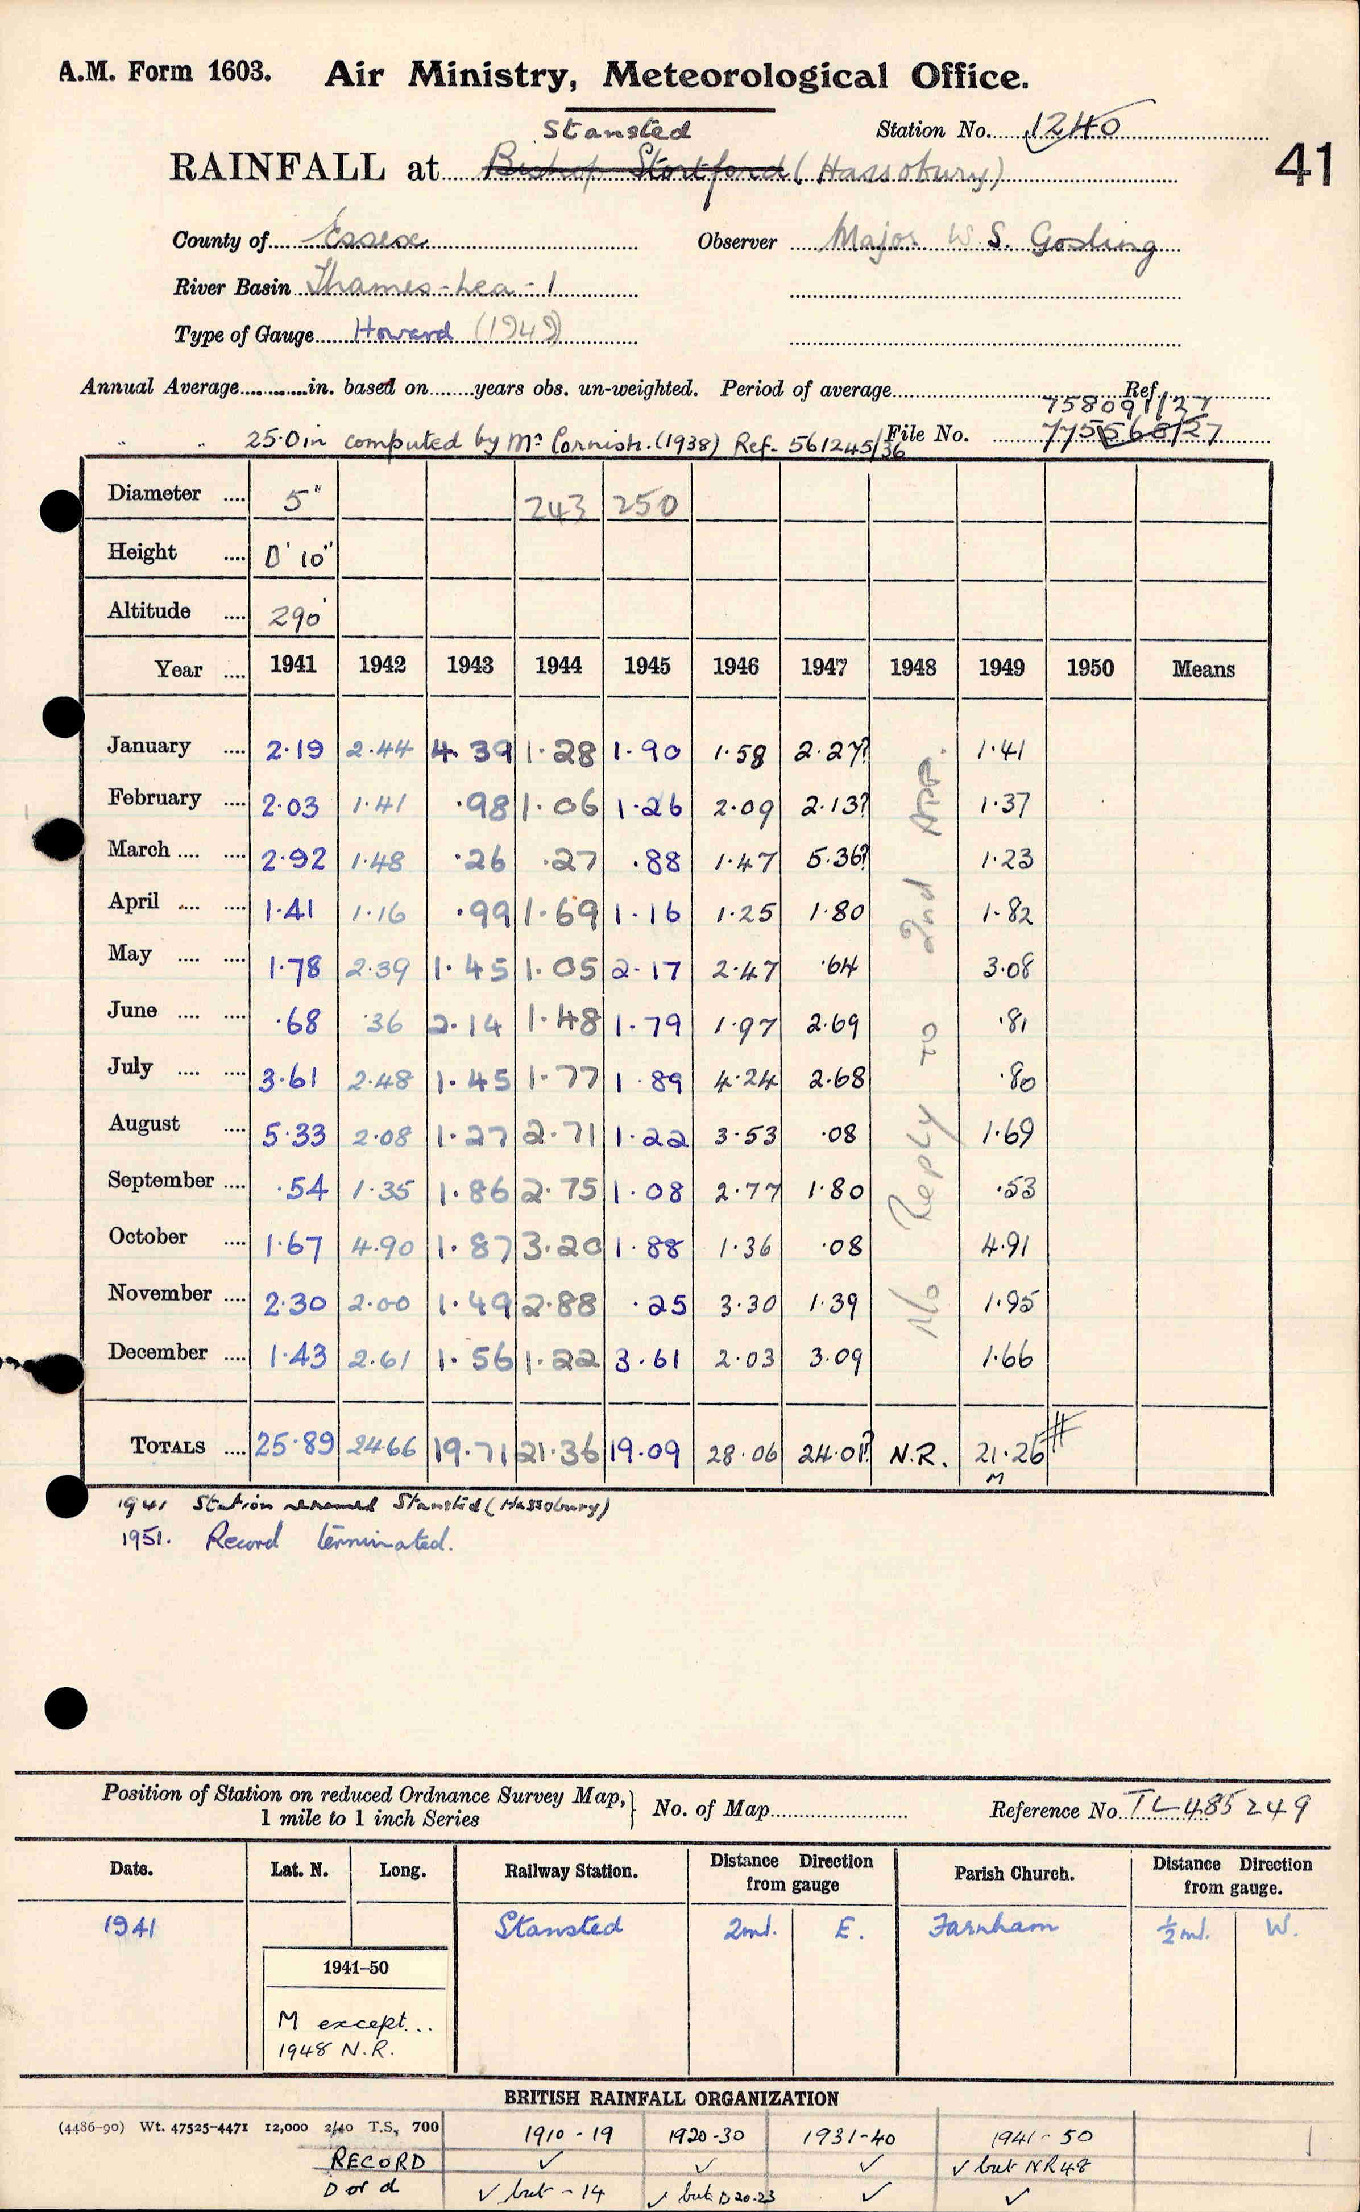 A.M. Form 1603. Air Ministry, Meteorological Office.
Stansted
Station No. 1240
RAINFALL at Bishop Stortford (Hassobury)
41
County of Essex Observer Major W. S. Gosling
River Basin Thames-Lea-1
Type of Gauge Howard (1949)
Annual Average............in. based on.......years obs. un-weighted. Period of average Ref
758091/27
" " 25.0in computed by Mr Cornish. (1938) Ref. 561245/36 File No. 775568/27
Diameter .... 5" 243 250
Height .... 0' 10"
Altitude .... 290'
Year .... 1941 1942 1943 1944 1945 1946 1947 1948 1949 1950 Means
January .... 2.19 2.44 4.39 1.28 1.90 1.58 2.27? 1.41
February .... 2.03 1.41 .98 1.06 1.26 2.09 2.13? 1.37
March .... .... 2.92 1.48 .26 .27 .88 1.47 5.36? 1.23
April .... .... 1.41 1.16 .99 1.69 1.16 1.25 1.80 1.82
May .... .... 1.78 2.39 1.45 1.05 2.17 2.47 .64 3.08
June .... .... .68 .36 2.14 1.48 1.79 1.97 2.69 .81
July .... .... 3.61 2.48 1.45 1.77 1.89 4.24 2.68 .80
August .... 5.33 2.08 1.27 2.71 1.22 3.53 .08 1.69
September .... .54 1.35 1.86 2.75 1.08 2.77 1.80 .53
October .... 1.67 4.90 1.87 3.20 1.88 1.36 .08 4.91
November .... 2.30 2.00 1.49 2.88 .25 3.30 1.39 1.95
December .... 1.43 2.61 1.56 1.22 3.61 2.03 3.09 1.66
No Reply to 2nd App.
TOTALS .... 25.89 24.66 19.71 21.36 19.09 28.06 24.01? N.R. 21.26 #
M
1941 Station renamed Stansted (Hassobury)
1951. Record terminated.
Position of Station on reduced Ordnance Survey Map,
1 mile to 1 inch Series
No. of Map Reference No. TL 485249
Date. Lat. N. Long. Railway Station. Distance Direction from gauge Parish Church. Distance Direction from gauge.
1941 Stansted 2ml. E. Farnham ½ml. W.
1941–50
M except...
1948 N.R.
BRITISH RAINFALL ORGANIZATION
(4486-90) Wt. 47525-4471 12,000 2/40 T.S. 700 1910-19 1920-30 1931-40 1941-50
RECORD ✓ ✓ ✓ ✓ but NR 48
D or d ✓ but -14 ✓ but D 20.23 ✓ ✓